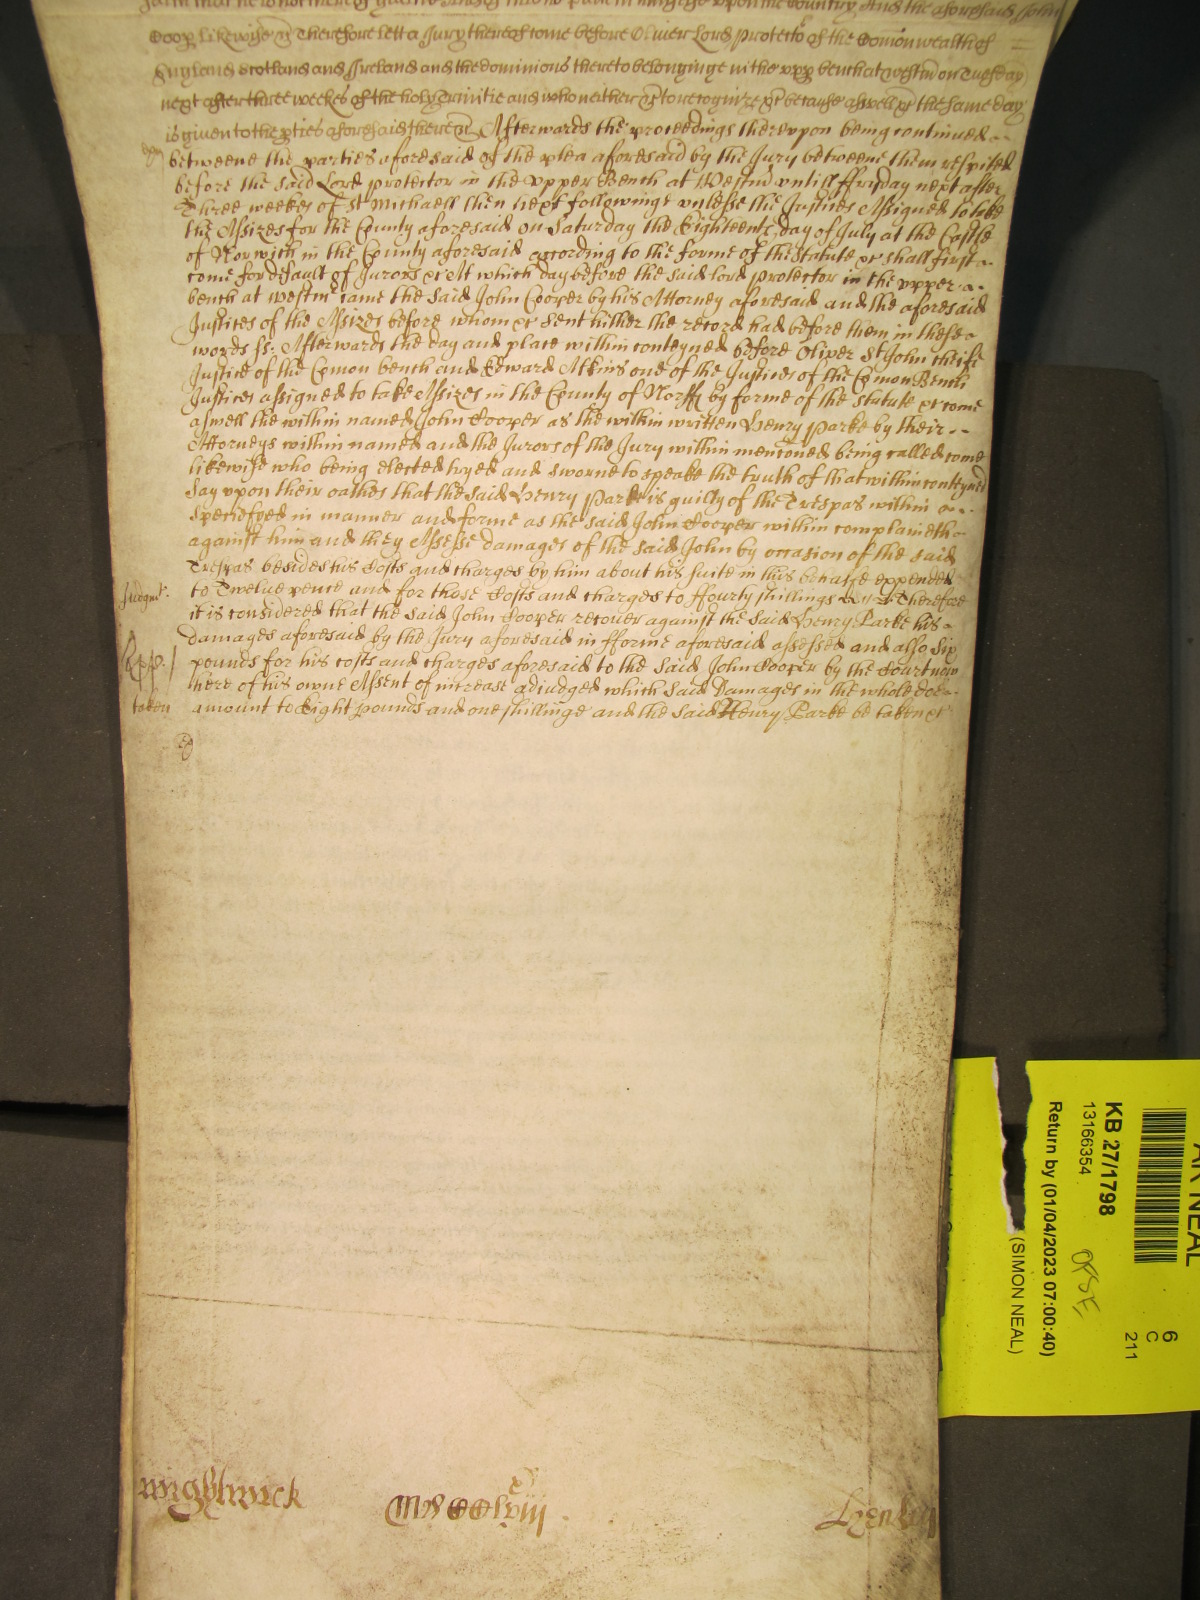 saith that he is not thereof guilty And of this he putteth himselfe upon the Country And the aforesaid John
Coop likewise &c Therefore lett a Jury thereof come before Oliver Lord Protector of the Comonwealth of
England Scotland and Ireland and the dominions thereto belonginge in the vpp bench at westm on Tuesday
next after three weekes of the holy Trinitie and who neither &c to recognize &c because aswell &c the same day
is given to the pties aforesaid there &c Afterwards the proceedings therevpon being continued
betweene the parties aforesaid of the plea aforesaid by the Jury betweene them respited
before the said Lord protector in the vpper Bench at Westm vntill ffryday next after
Three weekes of St Michaell then next followinge vnlesse the Justices Assigned to take
the Assizes for the County aforesaid on Saturday the Eighteenth day of July at the Castle
of Norwich in the County aforesaid according to the forme of the Statute &c shall first
come for default of Jurors &c At which day before the said lord protector in the vpper
bench at westm came the said John Cooper by his Attorney aforesaid and the aforesaid
Justices of the Assizes before whom &c sent hither the record had before them in these
words ss: Afterwards the day and place within conteyned before Oliver St John cheife
Justice of the Comon bench and Edward Atkins one of the Justices of the Comon Bench
Justices assigned to take Assizes in the County of Norff by forme of the Statute &c come
aswell the within named John Cooper as the within written Henry Parke by their
Attorneys within named and the Jurors of the Jury within mencioned being called come
likewise who being elected tryed and sworne to speake the truth of that within conteyned
say vpon their oathes that the said Henry Parke is guilty of the Trespas within
specifyed in manner and forme as the said John Cooper within complaineth
against him and they Assesse damages of the said John by occasion of the said
Trespas besides his Costs and charges by him about his suite in this behalfe expended
to Twelve pence and for those Costs and charges to ffourty shillings Therefore
Judgmt: it is considered that the said John Cooper recover against the said Henry Parke his
damages aforesaid by the Jury aforesaid in fforme aforesaid assessed and also Six
pounds for his costs and charges aforesaid to the said John Cooper by the Court now
here of his owne Assent of increase adjudged which said Damages in the whole doe
taken amount to Eight pounds and one shillinge and the said Henry Parke be taken &c
Wightwick
Henley
AR NEAL
6
C
211
KB 27/1798
13166354
OPSE
Return by (01/04/2023 07:00:40)
(SIMON NEAL)